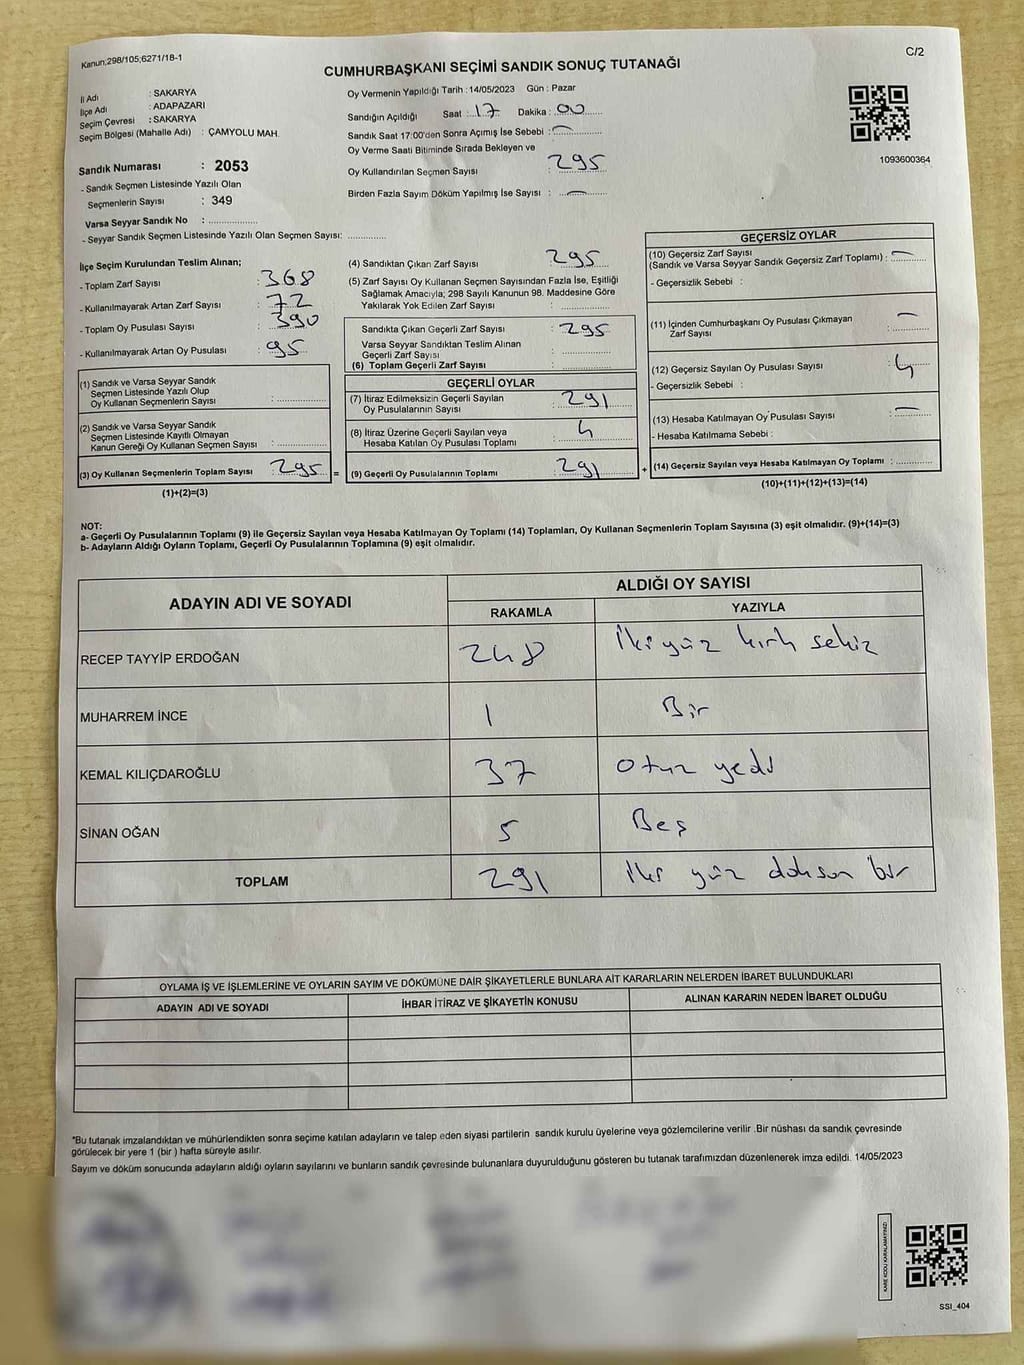 Kanun;298/105;6271/18-1
C/2
CUMHURBAŞKANI SEÇİMİ SANDIK SONUÇ TUTANAĞI
İl Adı : SAKARYA
İlçe Adı : ADAPAZARI
Seçim Çevresi : SAKARYA
Seçim Bölgesi (Mahalle Adı) : ÇAMYOLU MAH.
Sandık Numarası : 2053
- Sandık Seçmen Listesinde Yazılı Olan
Seçmenlerin Sayısı : 349
Varsa Seyyar Sandık No : ..................
- Seyyar Sandık Seçmen Listesinde Yazılı Olan Seçmen Sayısı: .............
Oy Vermenin Yapıldığı Tarih : 14/05/2023 Gün : Pazar
Sandığın Açıldığı Saat : 17 Dakika : 00
Sandık Saat 17:00'den Sonra Açımış İse Sebebi : —
Oy Verme Saati Bitiminde Sırada Bekleyen ve
Oy Kullandırılan Seçmen Sayısı : 295
Birden Fazla Sayım Döküm Yapılmış İse Sayısı : —
1093600364
İlçe Seçim Kurulundan Teslim Alınan;
- Toplam Zarf Sayısı : 368
- Kullanılmayarak Artan Zarf Sayısı : 72
- Toplam Oy Pusulası Sayısı : 390
- Kullanılmayarak Artan Oy Pusulası : 95
(1) Sandık ve Varsa Seyyar Sandık
Seçmen Listesinde Yazılı Olup
Oy Kullanan Seçmenlerin Sayısı : .............
(2) Sandık ve Varsa Seyyar Sandık
Seçmen Listesinde Kayıtlı Olmayan
Kanun Gereği Oy Kullanan Seçmen Sayısı : .............
(3) Oy Kullanan Seçmenlerin Toplam Sayısı : 295 =
(1)+(2)=(3)
(4) Sandıktan Çıkan Zarf Sayısı : 295
(5) Zarf Sayısı Oy Kullanan Seçmen Sayısından Fazla İse, Eşitliği
Sağlamak Amacıyla; 298 Sayılı Kanunun 98. Maddesine Göre
Yakılarak Yok Edilen Zarf Sayısı : .............
Sandıkta Çıkan Geçerli Zarf Sayısı : 295
Varsa Seyyar Sandıktan Teslim Alınan
Geçerli Zarf Sayısı : .............
(6) Toplam Geçerli Zarf Sayısı : .............
GEÇERLİ OYLAR
(7) İtiraz Edilmeksizin Geçerli Sayılan
Oy Pusulalarının Sayısı : 291
(8) İtiraz Üzerine Geçerli Sayılan veya
Hesaba Katılan Oy Pusulası Toplamı : 4
(9) Geçerli Oy Pusulalarının Toplamı : 291 +
GEÇERSİZ OYLAR
(10) Geçersiz Zarf Sayısı
(Sandık ve Varsa Seyyar Sandık Geçersiz Zarf Toplamı) : —
- Geçersizlik Sebebi :
(11) İçinden Cumhurbaşkanı Oy Pusulası Çıkmayan
Zarf Sayısı : —
(12) Geçersiz Sayılan Oy Pusulası Sayısı : 4
- Geçersizlik Sebebi :
(13) Hesaba Katılmayan Oy Pusulası Sayısı : —
- Hesaba Katılmama Sebebi :
(14) Geçersiz Sayılan veya Hesaba Katılmayan Oy Toplamı : .............
(10)+(11)+(12)+(13)=(14)
NOT:
a- Geçerli Oy Pusulalarının Toplamı (9) ile Geçersiz Sayılan veya Hesaba Katılmayan Oy Toplamı (14) Toplamları, Oy Kullanan Seçmenlerin Toplam Sayısına (3) eşit olmalıdır. (9)+(14)=(3)
b- Adayların Aldığı Oyların Toplamı, Geçerli Oy Pusulalarının Toplamına (9) eşit olmalıdır.
ADAYIN ADI VE SOYADI
ALDIĞI OY SAYISI
RAKAMLA YAZIYLA
RECEP TAYYİP ERDOĞAN 248 İki yüz kırk sekiz
MUHARREM İNCE 1 Bir
KEMAL KILIÇDAROĞLU 37 Otuz yedi
SİNAN OĞAN 5 Beş
TOPLAM 291 İki yüz doksan bir
OYLAMA İŞ VE İŞLEMLERİNE VE OYLARIN SAYIM VE DÖKÜMÜNE DAİR ŞİKAYETLERLE BUNLARA AİT KARARLARIN NELERDEN İBARET BULUNDUKLARI
ADAYIN ADI VE SOYADI İHBAR İTİRAZ VE ŞİKAYETİN KONUSU ALINAN KARARIN NEDEN İBARET OLDUĞU
*Bu tutanak imzalandıktan ve mühürlendikten sonra seçime katılan adayların ve talep eden siyasi partilerin sandık kurulu üyelerine veya gözlemcilerine verilir .Bir nüshası da sandık çevresinde
görülecek bir yere 1 (bir ) hafta süreyle asılır.
Sayım ve döküm sonucunda adayların aldığı oyların sayılarını ve bunların sandık çevresinde bulunanlara duyurulduğunu gösteren bu tutanak tarafımızdan düzenlenerek imza edildi. 14/05/2023
KARE KODU KARALAMAYINIZ!
SSI_404